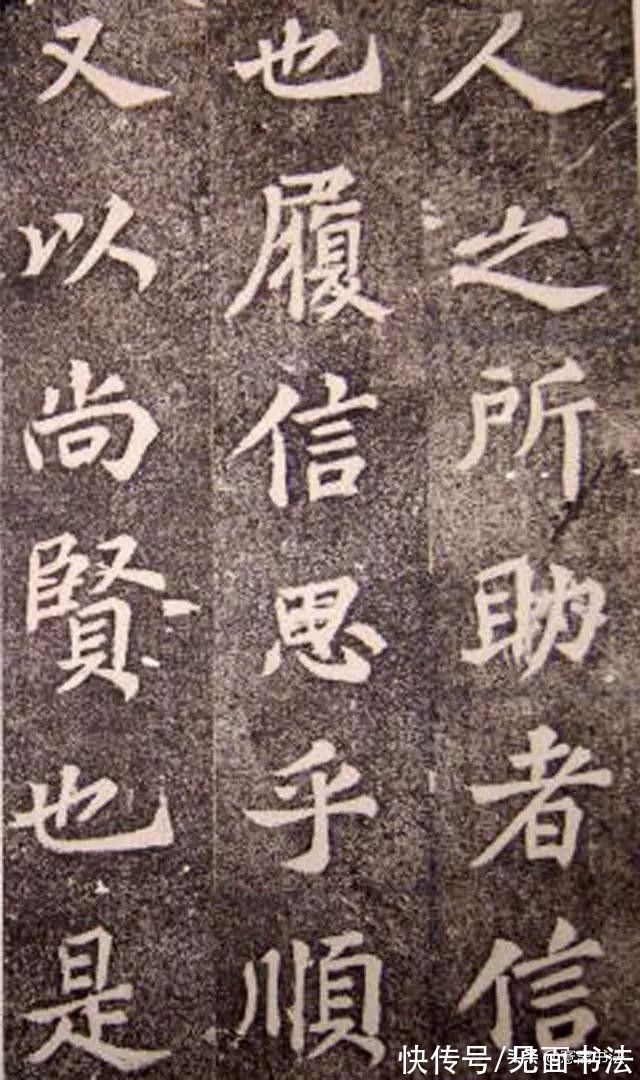 人之所助者信
也履信思乎順
又以尚賢也是
快传号/见面书法